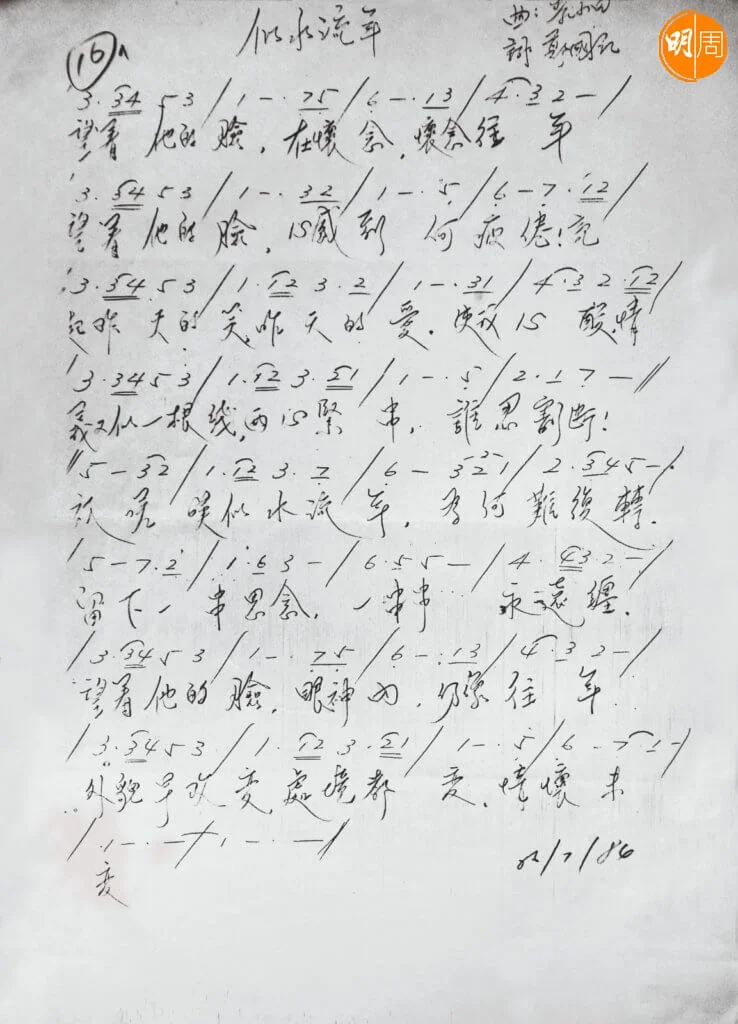 似水流年
曲：
詞 鄭國江
明周
16
3·34 5 3 / 1 – · 75 / 6 – · 13 / 4·3 2 – /
望着他的臉，在懷念，懷念往年
3·34 5 3 / 1 – · 32 / 1 – · 5 / 6 – 7·12 /
望着他的臉，心感到何疲倦！記
3·34 5 3 / 1·12 3·2 / 1 – · 31 / 4·3 2·12 /
起昨天的笑，昨天的愛，使我心酸，情
3·34 5 3 / 1·12 3·21 / 1 – · 5 / 2·1 7 – //
義又似一根线，兩心緊串，誰忍割斷！
// 5 – 32 / 1·12 3·7 / 6 – 321 / 2·345 – /
嗟嘆似水流年，為何難復轉．
/ 5 – 7·2 / 1·6 3 – / 6·5 5 – / 4·43 2 – /
留下一串思念，一串串永遠纏．
/ 3·34 5 3 / 1 – · 75 / 6 – · 13 / 4·3 2 – /
望着他的臉，眼神內，仍像往年
/ 3·34 5 3 / 1·12 3·21 / 1 – · 5 / 6 – 7 1 – /
外貌早改變，處境都變，情懷未
/ 1 – · – / 1 – · – //
變
/7/84